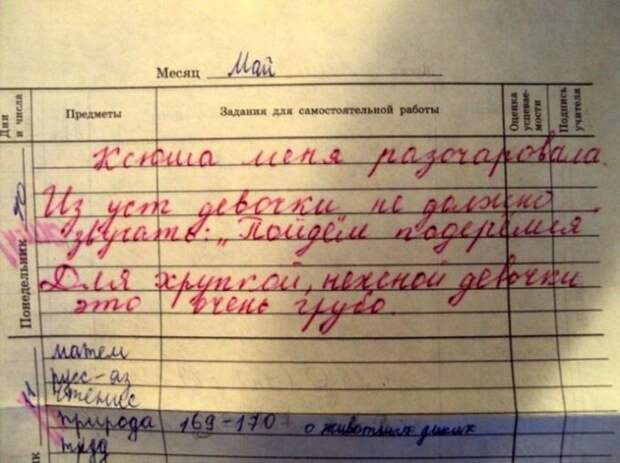 Месяц Май
Дни и числа
Предметы
Задания для самостоятельной работы
Оценка успевае-мости
Подпись учителя
Понедельник 10
Ксюша меня разочаровала.
Из уст девочки не должно
звучать: „Пойдём подерёмся
Для хрупкой, нежной девочки
это очень грубо.
11
матем
русс-яз
чтение
природа 169-170 о животных диких
труд